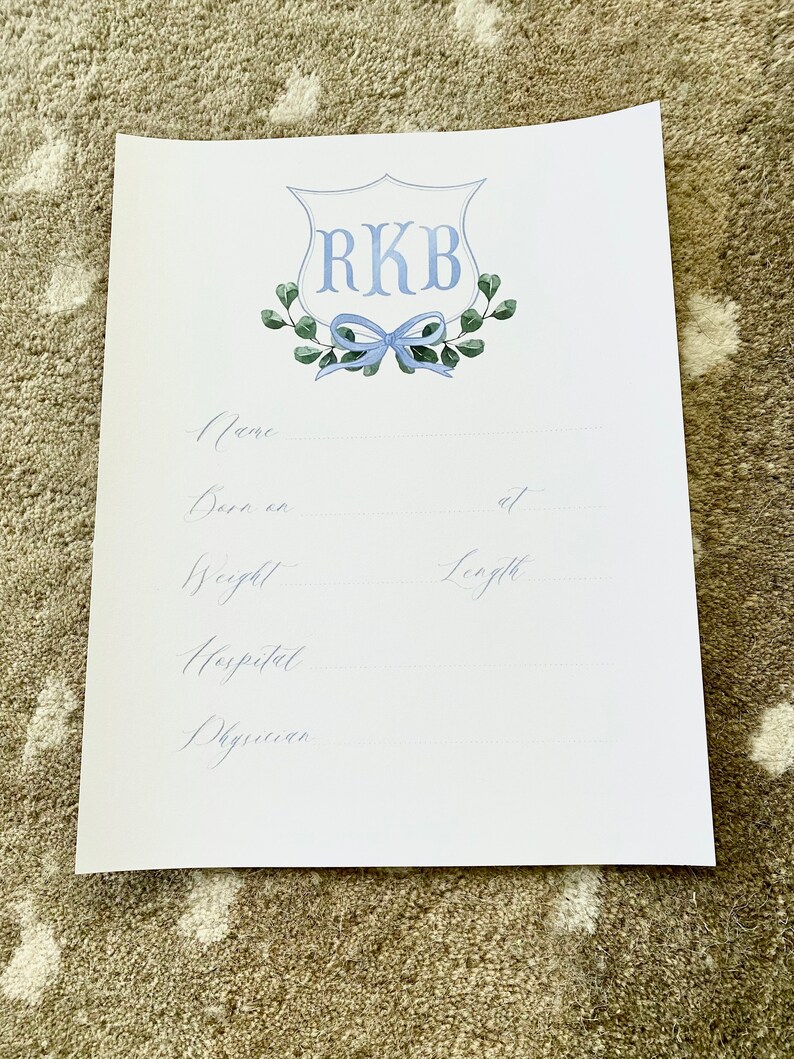 RKB
Name
Born on at
Weight Length
Hospital
Physician